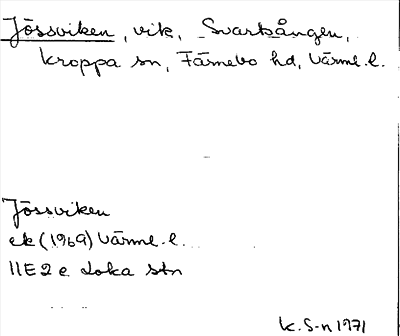 Jössviken, vik, Svartsången,
Kroppa sn, Färnebo hd, Värml. l.
Jössviken
ek (1969) Värml. l.
11E 2 e Loka stn
K. S-n 1971